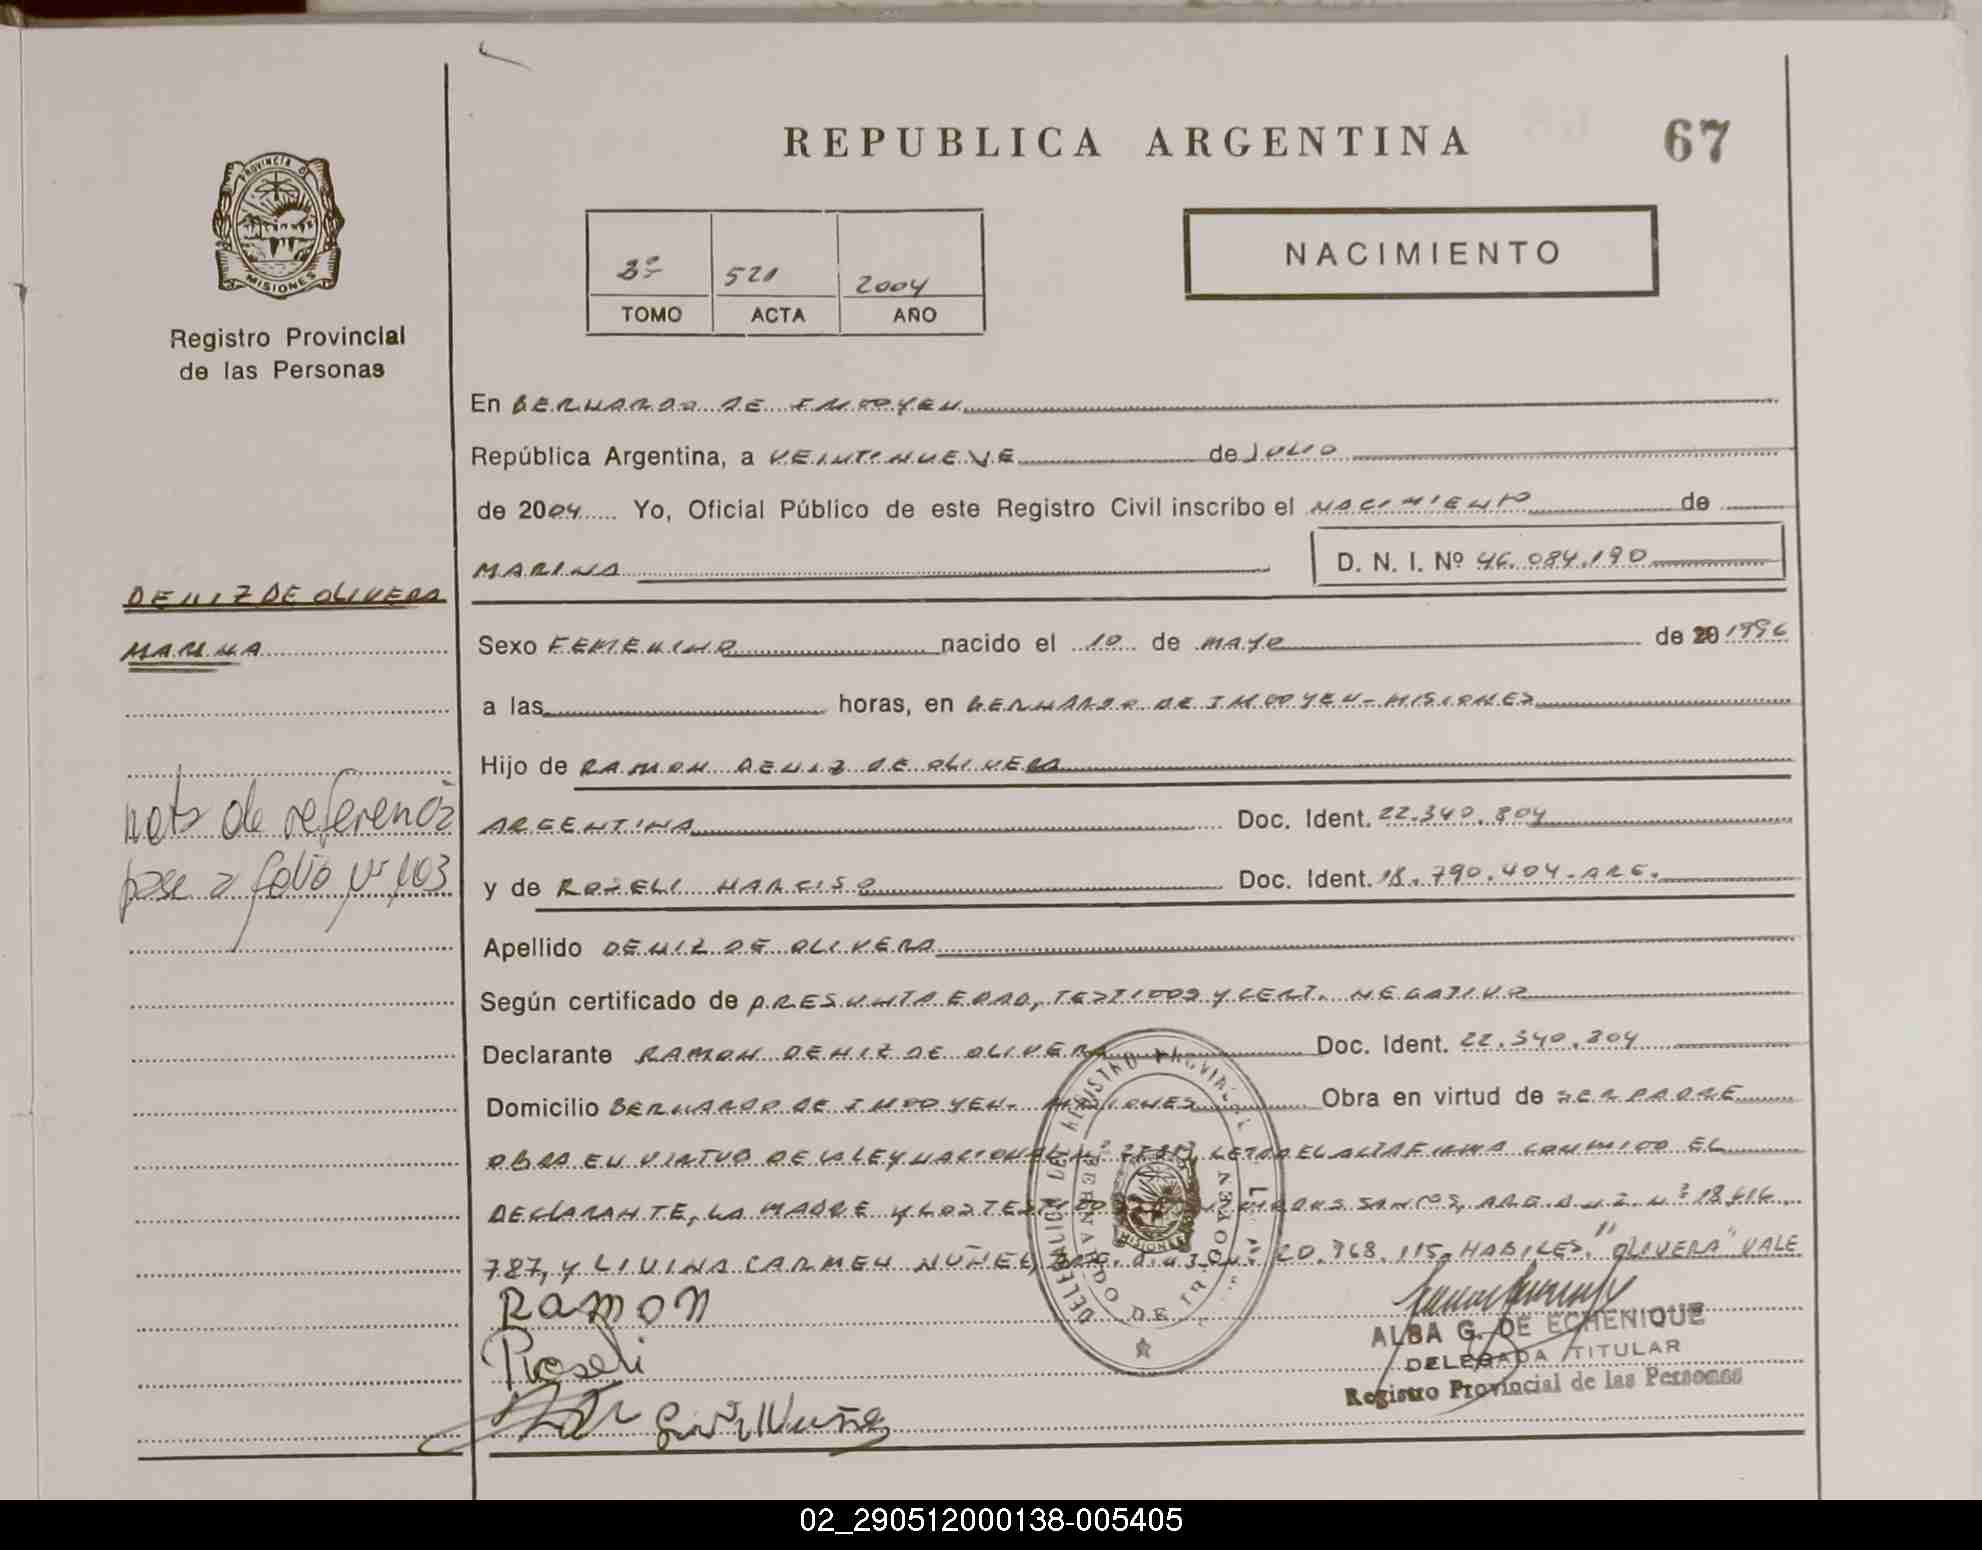 REPUBLICA ARGENTINA
67
PROVINCIA DE
MISIONES
Registro Provincial
de las Personas
3º 521 2004
TOMO ACTA AÑO
NACIMIENTO
En BERNARDO DE IRIGOYEN
República Argentina, a VEINTINUEVE de JULIO
de 2004 Yo, Oficial Público de este Registro Civil inscribo el NACIMIENTO de
MARINA D. N. I. Nº 46.084.190
DENIZ DE OLIVERA
MARINA
nota de referencia
pase a folio Nº 103
Sexo FEMENINO nacido el 10 de MAYO de 1996
a las horas, en BERNARDO DE IRIGOYEN - MISIONES
Hijo de RAMON DENIZ DE OLIVERA
ARGENTINA Doc. Ident. 22.340.804
y de ROSELI NARCISO Doc. Ident. 18.790.404 - ARG.
Apellido DENIZ DE OLIVERA
Según certificado de PRESUNTA EDAD, TESTIGOS Y CERT. NEGATIVO
Declarante RAMON DENIZ DE OLIVERA Doc. Ident. 22.340.804
Domicilio BERNARDO DE IRIGOYEN - MISIONES Obra en virtud de SER PADRE
OBRA EN VIRTUD DE LA LEY NACIONAL LEIDA EL ACTA FIRMA CONMIGO EL
DECLARANTE, LA MADRE Y LOS TESTIGOS SANTOS, ARG. D.N.I. Nº 18.616.
787, Y LIVINA CARMEN NUÑEZ, ARG. D.N.I. Nº 20.768.115. HABILES. "OLIVERA" VALE
RAMON
Roseli
Nuñez
DELEGACION DEL REGISTRO PROVINCIAL
BERNARDO DE IRIGOYEN
MISIONES
ALBA G. DE ECHENIQUE
DELEGADA TITULAR
Registro Provincial de las Personas
02_290512000138-005405